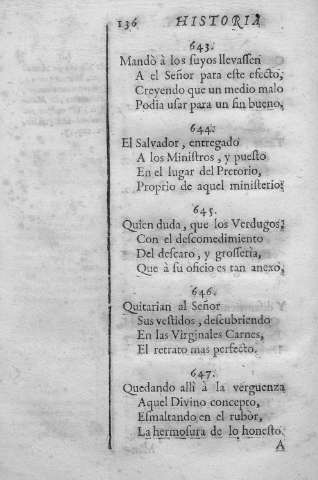 136 HISTORIA
643.
Mandò à los suyos llevassen
A el Señor para este efecto,
Creyendo que un medio malo
Podia usar para un fin bueno,
644.
El Salvador, entregado
A los Ministros, y puesto
En el lugar del Pretorio,
Proprio de aquel ministerio;
645.
Quien duda, que los Verdugos,
Con el descomedimiento
Del descaro, y grosseria,
Que à su oficio es tan anexo,
646.
Quitarian al Señor
Sus vestidos, descubriendo
En las Virginales Carnes,
El retrato mas perfecto.
647.
Quedando allì à la verguenza
Aquel Divino concepto,
Esmaltando en el rubòr,
La hermosura de lo honesto.
A